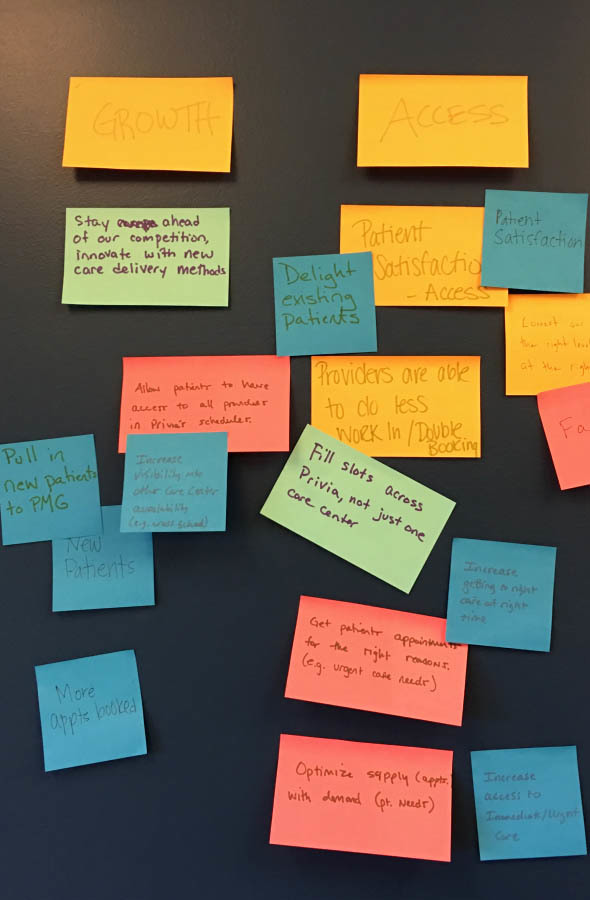 GROWTH
ACCESS
Stay ahead
of our competition,
innovate with new
care delivery methods
Patient
Satisfactio
- Access
Patient
Satisfaction
Delight
existing
patients
Lowest
the right level
at the right
Allow patients to have
access to all providers
in Privia's schedules.
Providers are able
to do less
Work In/Double
Booking
Fa
Pull in
new patients
to PMG
Increase
visibility into
other Care Center
availability
(e.g. cross sched)
Fill slots across
Privia, not just one
care center
New
Patients
Increase
getting to right
care at right
time
Get patients appointments
for the right reasons.
(e.g. urgent care needs)
More
appts booked
Optimize supply (appts.)
with demand (pt. needs)
Increase
access to
Immediate/Urgnt
Care